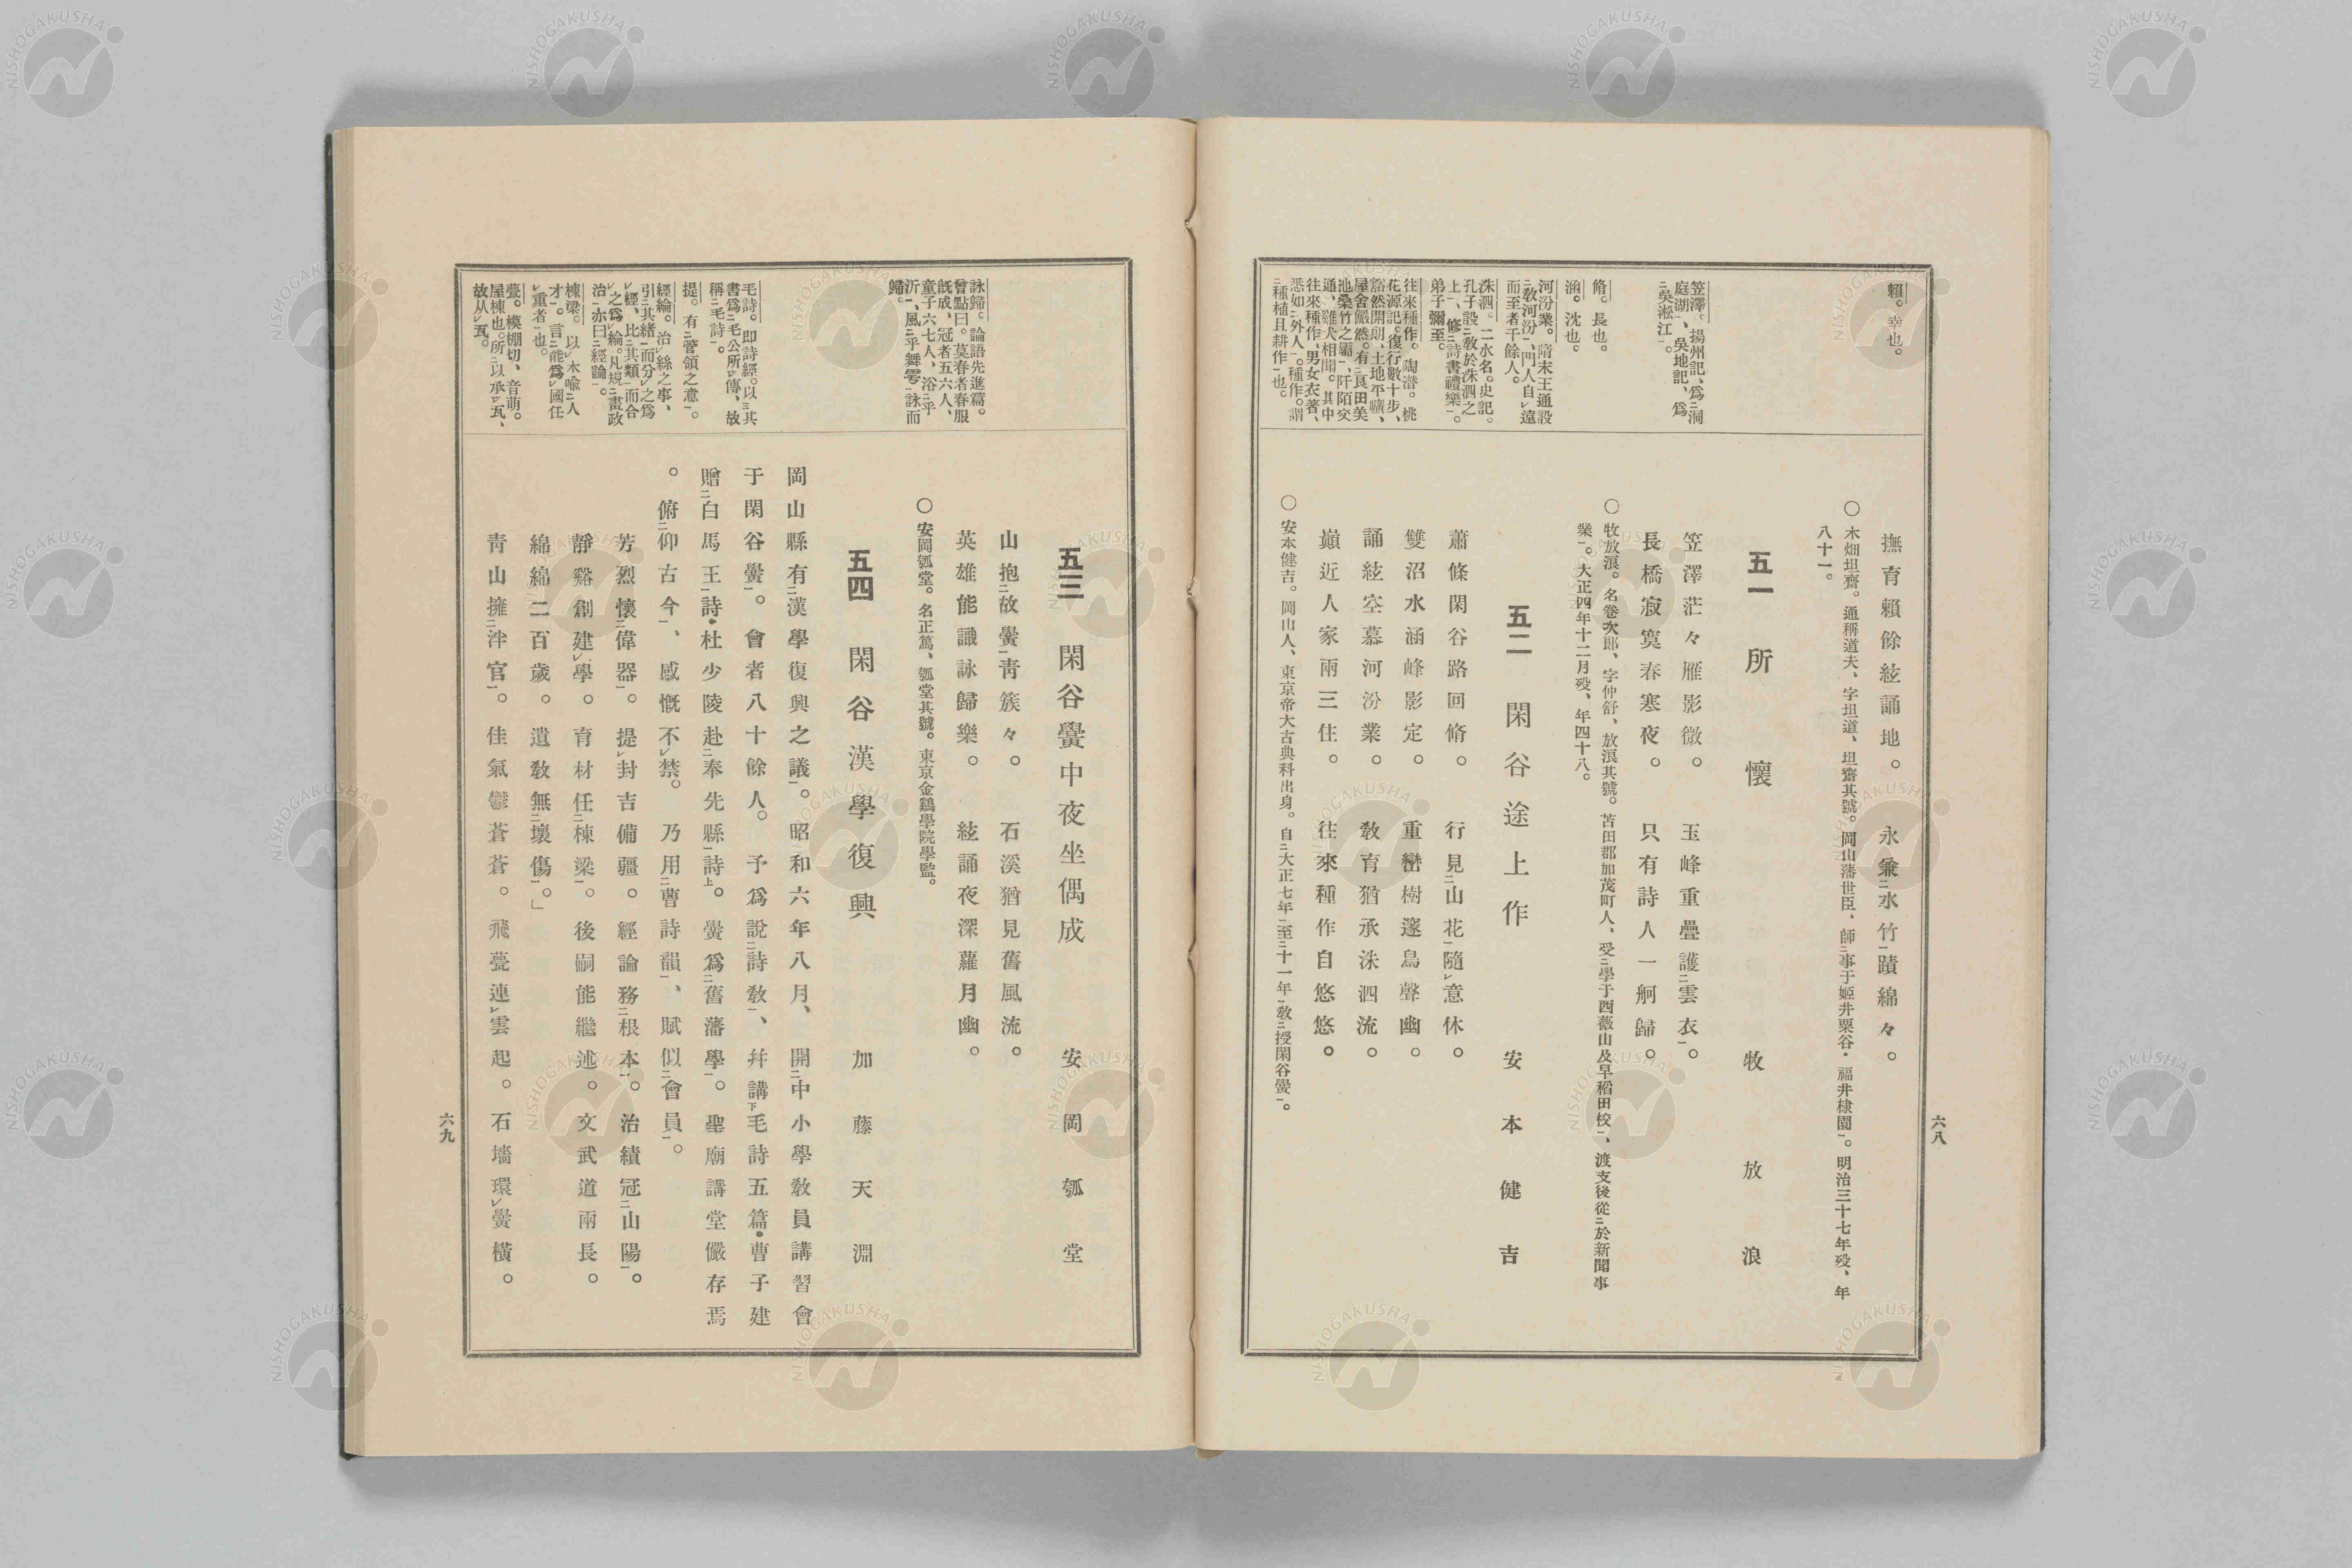 賴。幸也。
笠澤。揚州記、爲洞
庭湖、吳地記、爲
吳淞江。
脩。長也。
涵。沈也。
河汾業。隋末王通設
敎河汾、門人自遠
而至者千餘人。
洙泗。二水名。史記。
孔子設敎於洙泗之
上、修詩書禮樂。
弟子彌至。
往來種作。陶潛。桃
花源記。復行數十步、
豁然開朗、土地平曠、
屋舍儼然。有良田美
池桑竹之屬、阡陌交
通、雞犬相聞。其中
往來種作、男女衣著、
悉如外人。種作。謂
種植且耕作也。
撫育賴餘絃誦地。 永兼水竹蹟綿々。
〇 木畑坦齋。通稱道夫、字坦道、坦齋其號。岡山藩世臣、師事于姬井粟谷・福井棣園。明治三十七年歿、年
八十一。
五一 所懷 牧放浪
笠澤茫々雁影微。 玉峰重疊護雲衣。
長橋寂寞春寒夜。 只有詩人一舸歸。
〇 牧放浪。名卷次郎、字仲舒、放浪其號。苫田郡加茂町人、受學于西薇山及早稻田校、渡支後從於新聞事
業。大正四年十二月歿、年四十八。
五二 閑谷途上作 安本健吉
蕭條閑谷路回脩。 行見山花隨意休。
雙沼水涵峰影定。 重巒樹邃鳥聲幽。
誦絃空慕河汾業。 敎育猶承洙泗流。
巔近人家兩三住。 往來種作自悠悠。
〇 安本健吉。岡山人、東京帝大古典科出身。自大正七年至十一年敎授閑谷黌。
六八
詠歸。論語先進篇。
曾點曰。莫春者春服
旣成、冠者五六人、
童子六七人、浴乎
沂、風乎舞雩、詠而
歸。
毛詩。卽詩經。以其
書爲毛公所傳、故
稱毛詩。
提。有管領之意。
經綸。治絲之事、
引其緖而分之爲
經、比其類而合
之爲綸。凡規畫政
治亦曰經論。
棟梁。以木喩人
才。言能爲國任
重者也。
甍。模棚切、音萌。
屋棟也。所以承瓦、
故从瓦。
五三 閑谷黌中夜坐偶成 安岡瓠堂
山抱故黌靑簇々。 石溪猶見舊風流。
英雄能識詠歸樂。 絃誦夜深蘿月幽。
〇 安岡瓠堂。名正篤、瓠堂其號。東京金鷄學院學監。
五四 閑谷漢學復興 加藤天淵
岡山縣有漢學復興之議。昭和六年八月、開中小學敎員講習會
于閑谷黌。會者八十餘人。予爲說詩敎、幷講毛詩五篇・曹子建
贈白馬王詩・杜少陵赴奉先縣詩。黌爲舊藩學。聖廟講堂儼存焉
。俯仰古今、感慨不禁。乃用曹詩韻、賦似會員。
芳烈懷偉器。提封吉備疆。經論務根本。治績冠山陽。
靜谿創建學。育材任棟梁。後嗣能繼述。文武道兩長。
綿綿二百歲。遺敎無壞傷。」
靑山擁泮宮。佳氣鬱蒼蒼。飛甍連雲起。石墻環黌橫。
六九